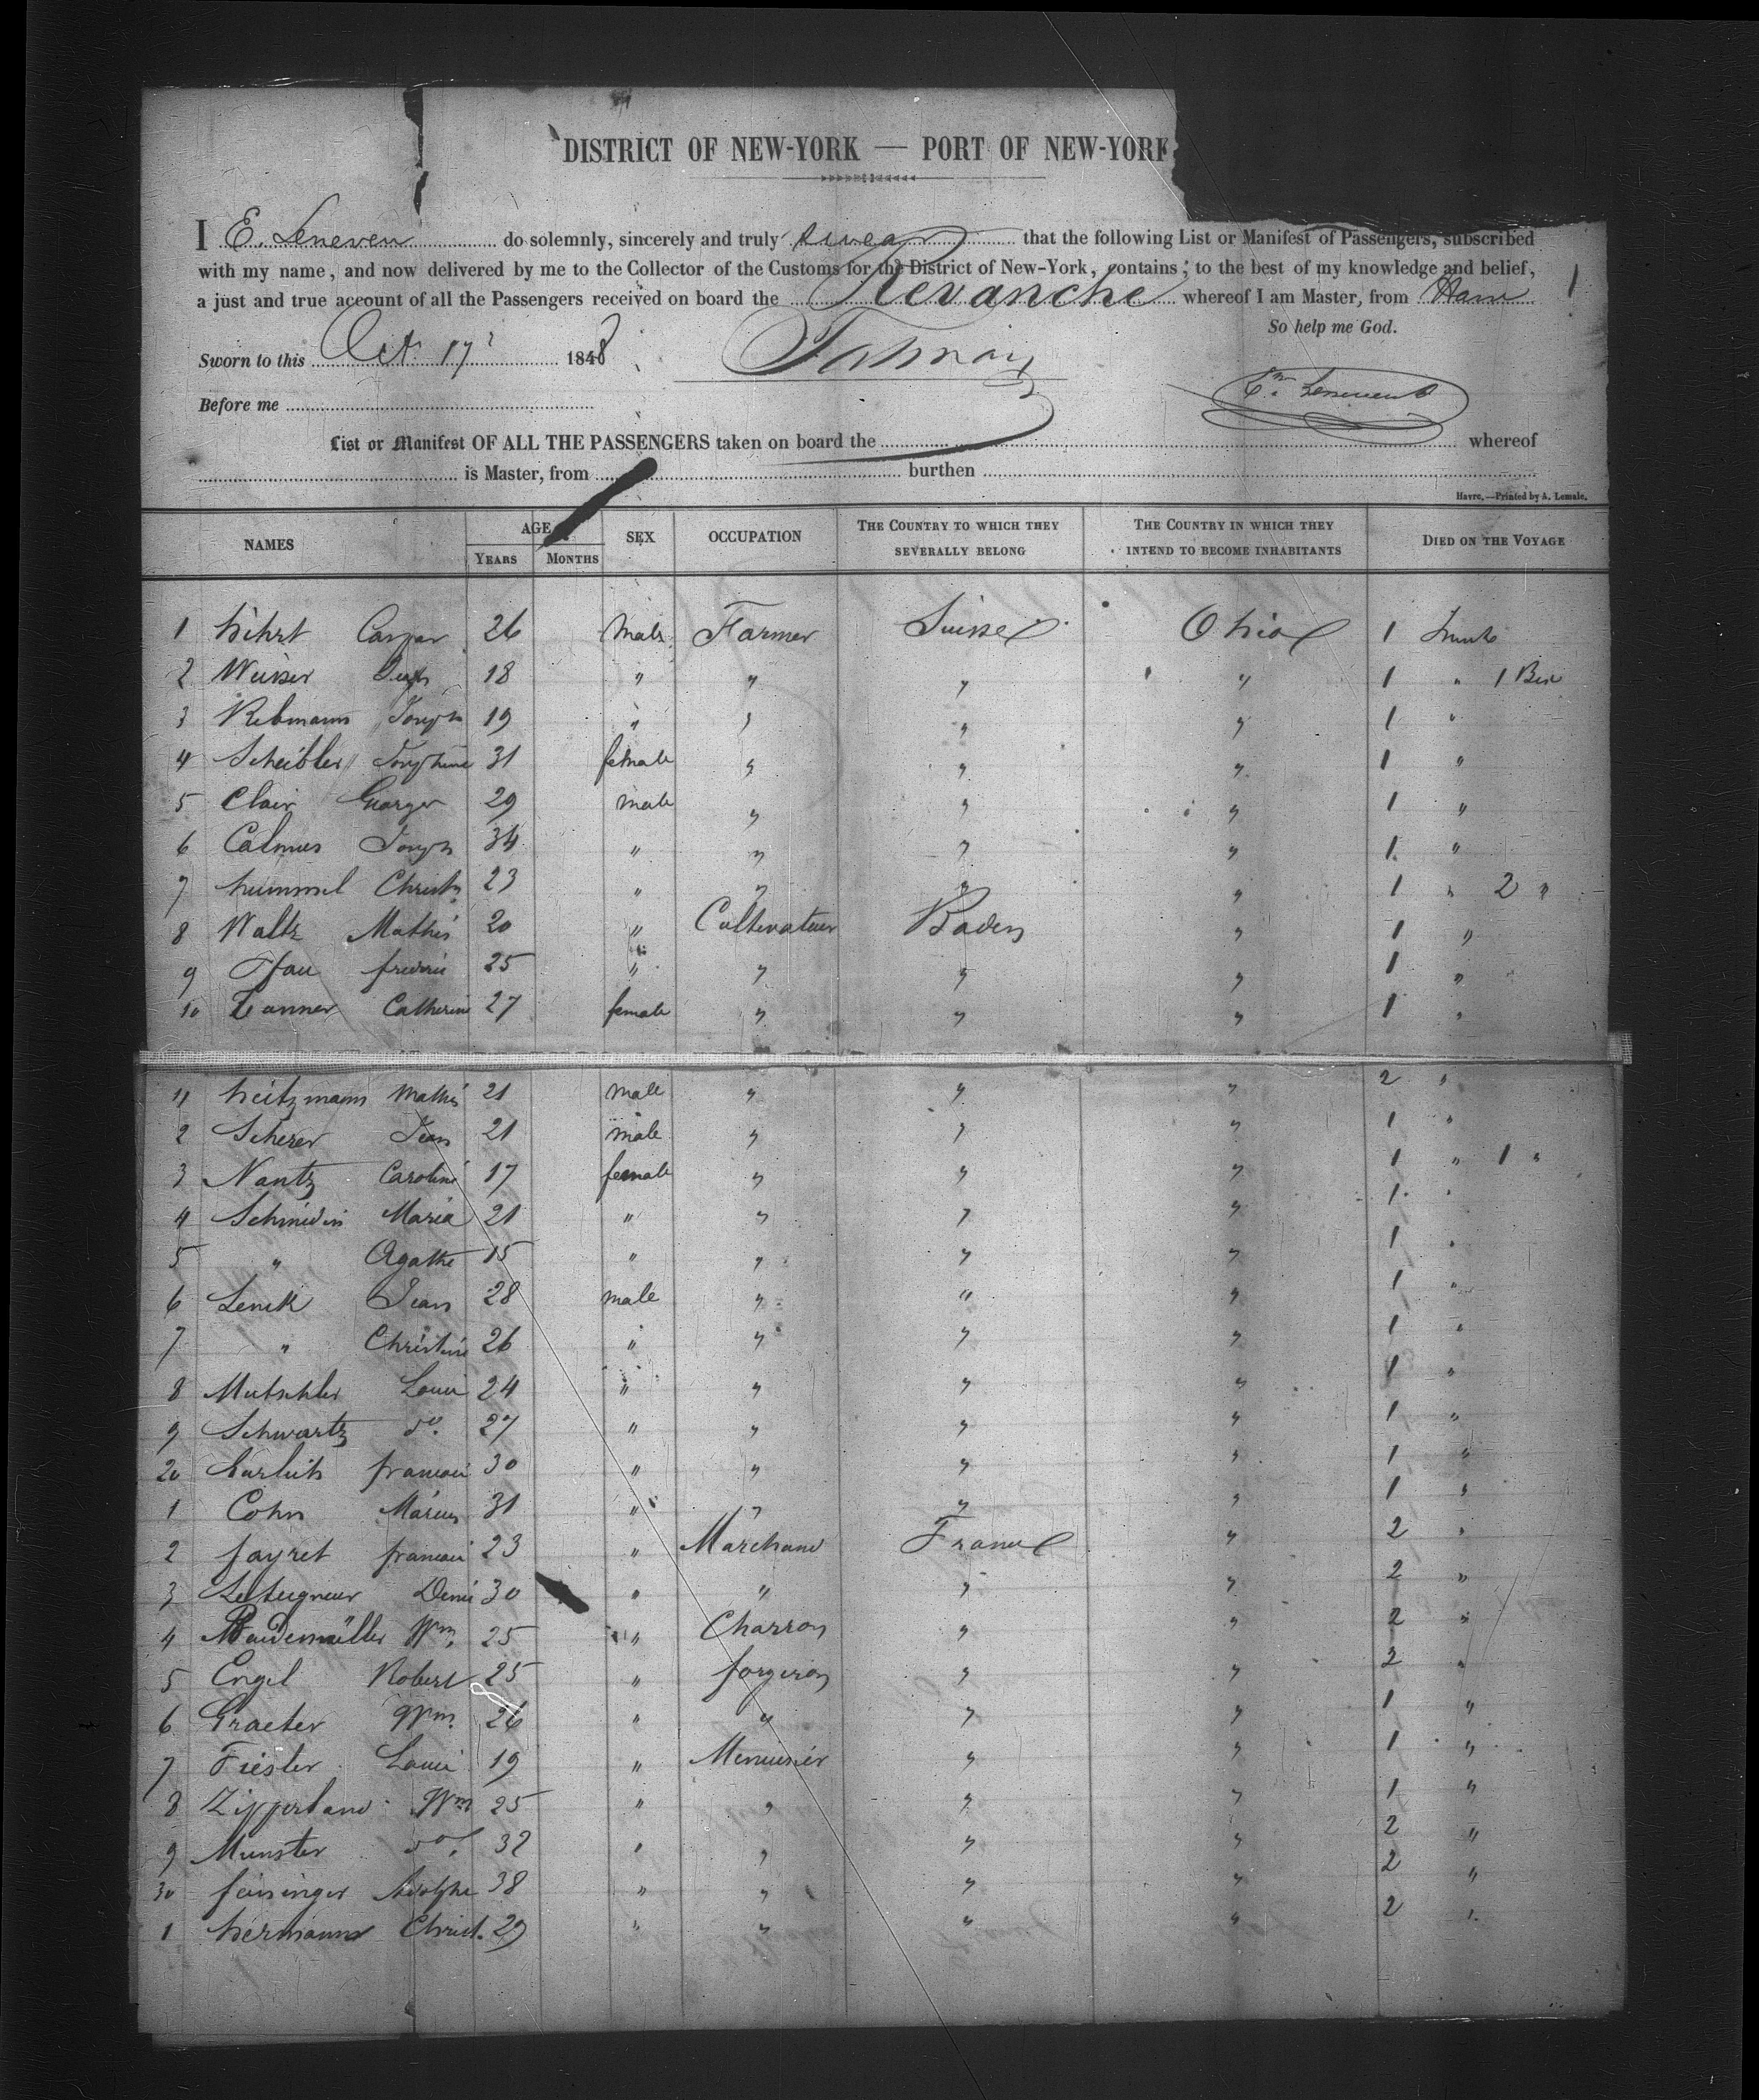 DISTRICT OF NEW-YORK — PORT OF NEW-YORK
I E. Leneven do solemnly, sincerely and truly swear that the following List or Manifest of Passengers, subscribed
with my name, and now delivered by me to the Collector of the Customs for the District of New-York, contains; to the best of my knowledge and belief,
a just and true account of all the Passengers received on board the Revanche whereof I am Master, from 1
So help me God.
Sworn to this Oct 17 1848
Before me
List or Manifest OF ALL THE PASSENGERS taken on board the whereof
is Master, from burthen
Havre,—Printed by A. Lemale.
NAMES AGE YEARS MONTHS SEX OCCUPATION THE COUNTRY TO WHICH THEY SEVERALLY BELONG THE COUNTRY IN WHICH THEY INTEND TO BECOME INHABITANTS DIED ON THE VOYAGE
1 Caspar 26 Male Farmer Suisse Ohio 1
2 18 " " " " 1 "
3 Rebmann Joseph 19 " " " " 1 "
4 Scheibler Josephine 31 female " " " 1 "
5 Clair George 29 male " " " 1 "
6 Calmus Joseph 34 " " " " 1 "
7 hummel Christ 23 " " " " 1 " 2 "
8 Waltz Mathis 20 " Cultivateur Baden " 1 "
9 Pfau frederic 25 " " " " 1 "
10 Catherine 27 female " " " 1 "
11 heitzmann Mathis 21 male " " " 2 "
2 Scherer Jean 21 male " " " 1 "
3 Nantz Caroline 17 female " " " 1 " 1 "
4 Maria 21 " " " " 1 "
5 " Agathe 15 " " " " 1 "
6 Jean 28 male " " " 1 "
7 " Christine 26 " " " " 1 "
8 Mutschler Louis 24 " " " " 1 "
9 Schwartz do. 27 " " " " 1 "
20 francois 30 " " " " 1 "
1 Cohn Marcus 31 " " " " 1 "
2 fayret francois 23 " Marchand France " 2 "
3 Leseigneur Denis 30 " " " " 2 "
4 Wm. 25 " Charron " " 2 "
5 Engel Robert 25 " forgeron " " 2 "
6 Graeter Wm. 26 " " " " 1 "
7 Fiesler Louis 19 " Menuisier " " 1 "
8 Zipperland Wm 25 " " " " 1 "
9 Munster do. 32 " " " " 2 "
30 feisinger Adolphe 38 " " " " 2 "
1 hermann Christ. 29 " " " " 2 "